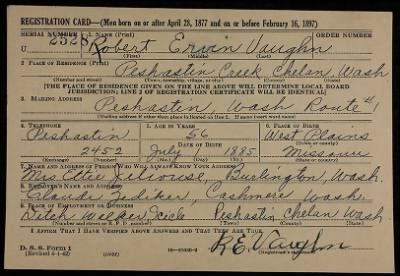 REGISTRATION CARD—(Men born on or after April 28, 1877 and on or before February 16, 1897)
SERIAL NUMBER 1. NAME (Print) ORDER NUMBER
2328 Robert Ervin Vaughn
(First) (Middle) (Last)
2. PLACE OF RESIDENCE (Print)
Peshastin Creek Chelan, Wash
(Number and street) (Town, township, village, or city) (County) (State)
[THE PLACE OF RESIDENCE GIVEN ON THE LINE ABOVE WILL DETERMINE LOCAL BOARD
JURISDICTION; LINE 2 OF REGISTRATION CERTIFICATE WILL BE IDENTICAL]
3. MAILING ADDRESS
Peshastin, Wash Route 1
[Mailing address if other than place indicated on line 2. If same insert word same]
4. TELEPHONE 5. AGE IN YEARS 6. PLACE OF BIRTH
Peshastin 56 West Plains
DATE OF BIRTH (Town or county)
2452 July 1885 Missouri
(Exchange) (Number) (Mo.) (Day) (Yr.) (State or country)
7. NAME AND ADDRESS OF PERSON WHO WILL ALWAYS KNOW YOUR ADDRESS
Mrs Ettie Burlington, Wash.
8. EMPLOYER'S NAME AND ADDRESS
Claude Cashmere Wash.
9. PLACE OF EMPLOYMENT OR BUSINESS
Ditch Icicle Peshastin Chelan Wash.
(Number and street or R. F. D. number) (Town) (County) (State)
I AFFIRM THAT I HAVE VERIFIED ABOVE ANSWERS AND THAT THEY ARE TRUE.
D. S. S. Form 1
(Revised 4-1-42) (over)
R.E. Vaughn
(Registrant's signature)